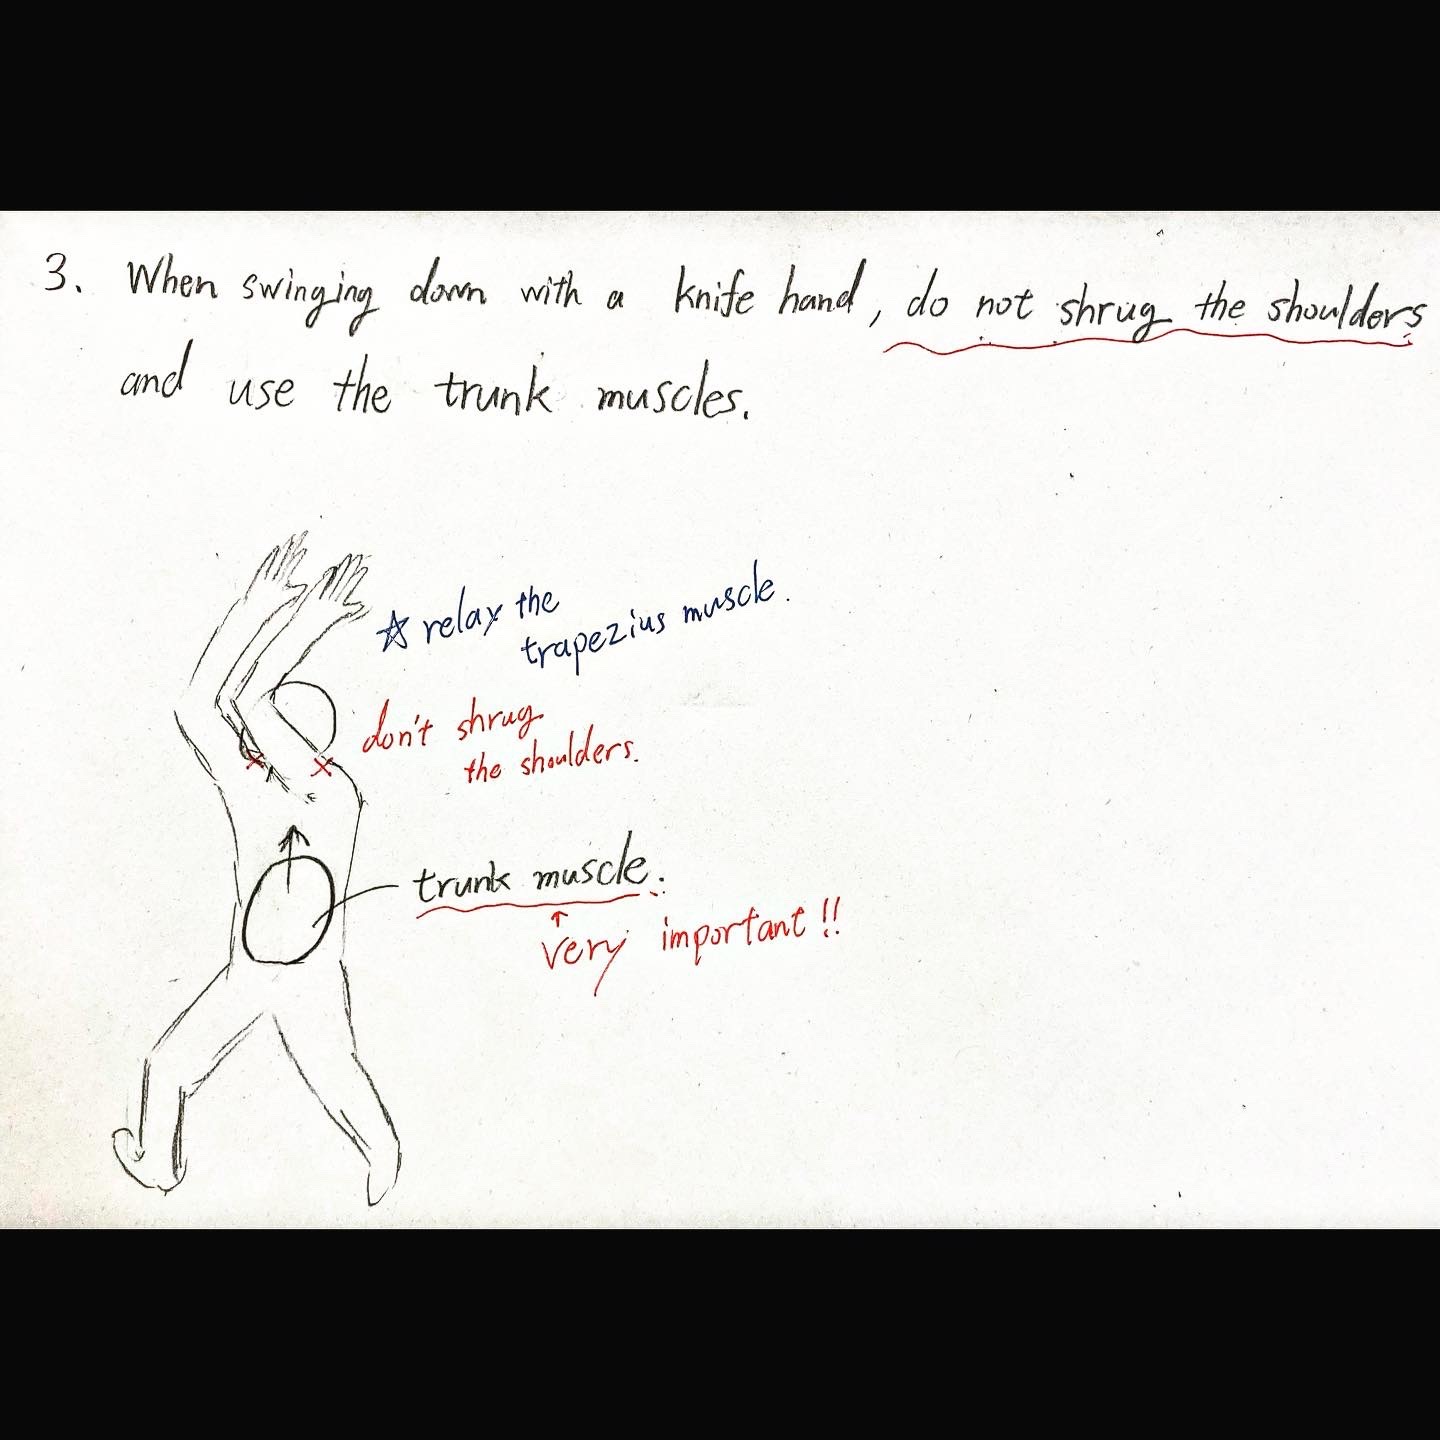 3. When swinging down with a knife hand, do not shrug the shoulders
and use the trunk muscles.
☆ relax the
trapezius muscle.
don't shrug
the shoulders.
trunk muscle.
↑
very important!!